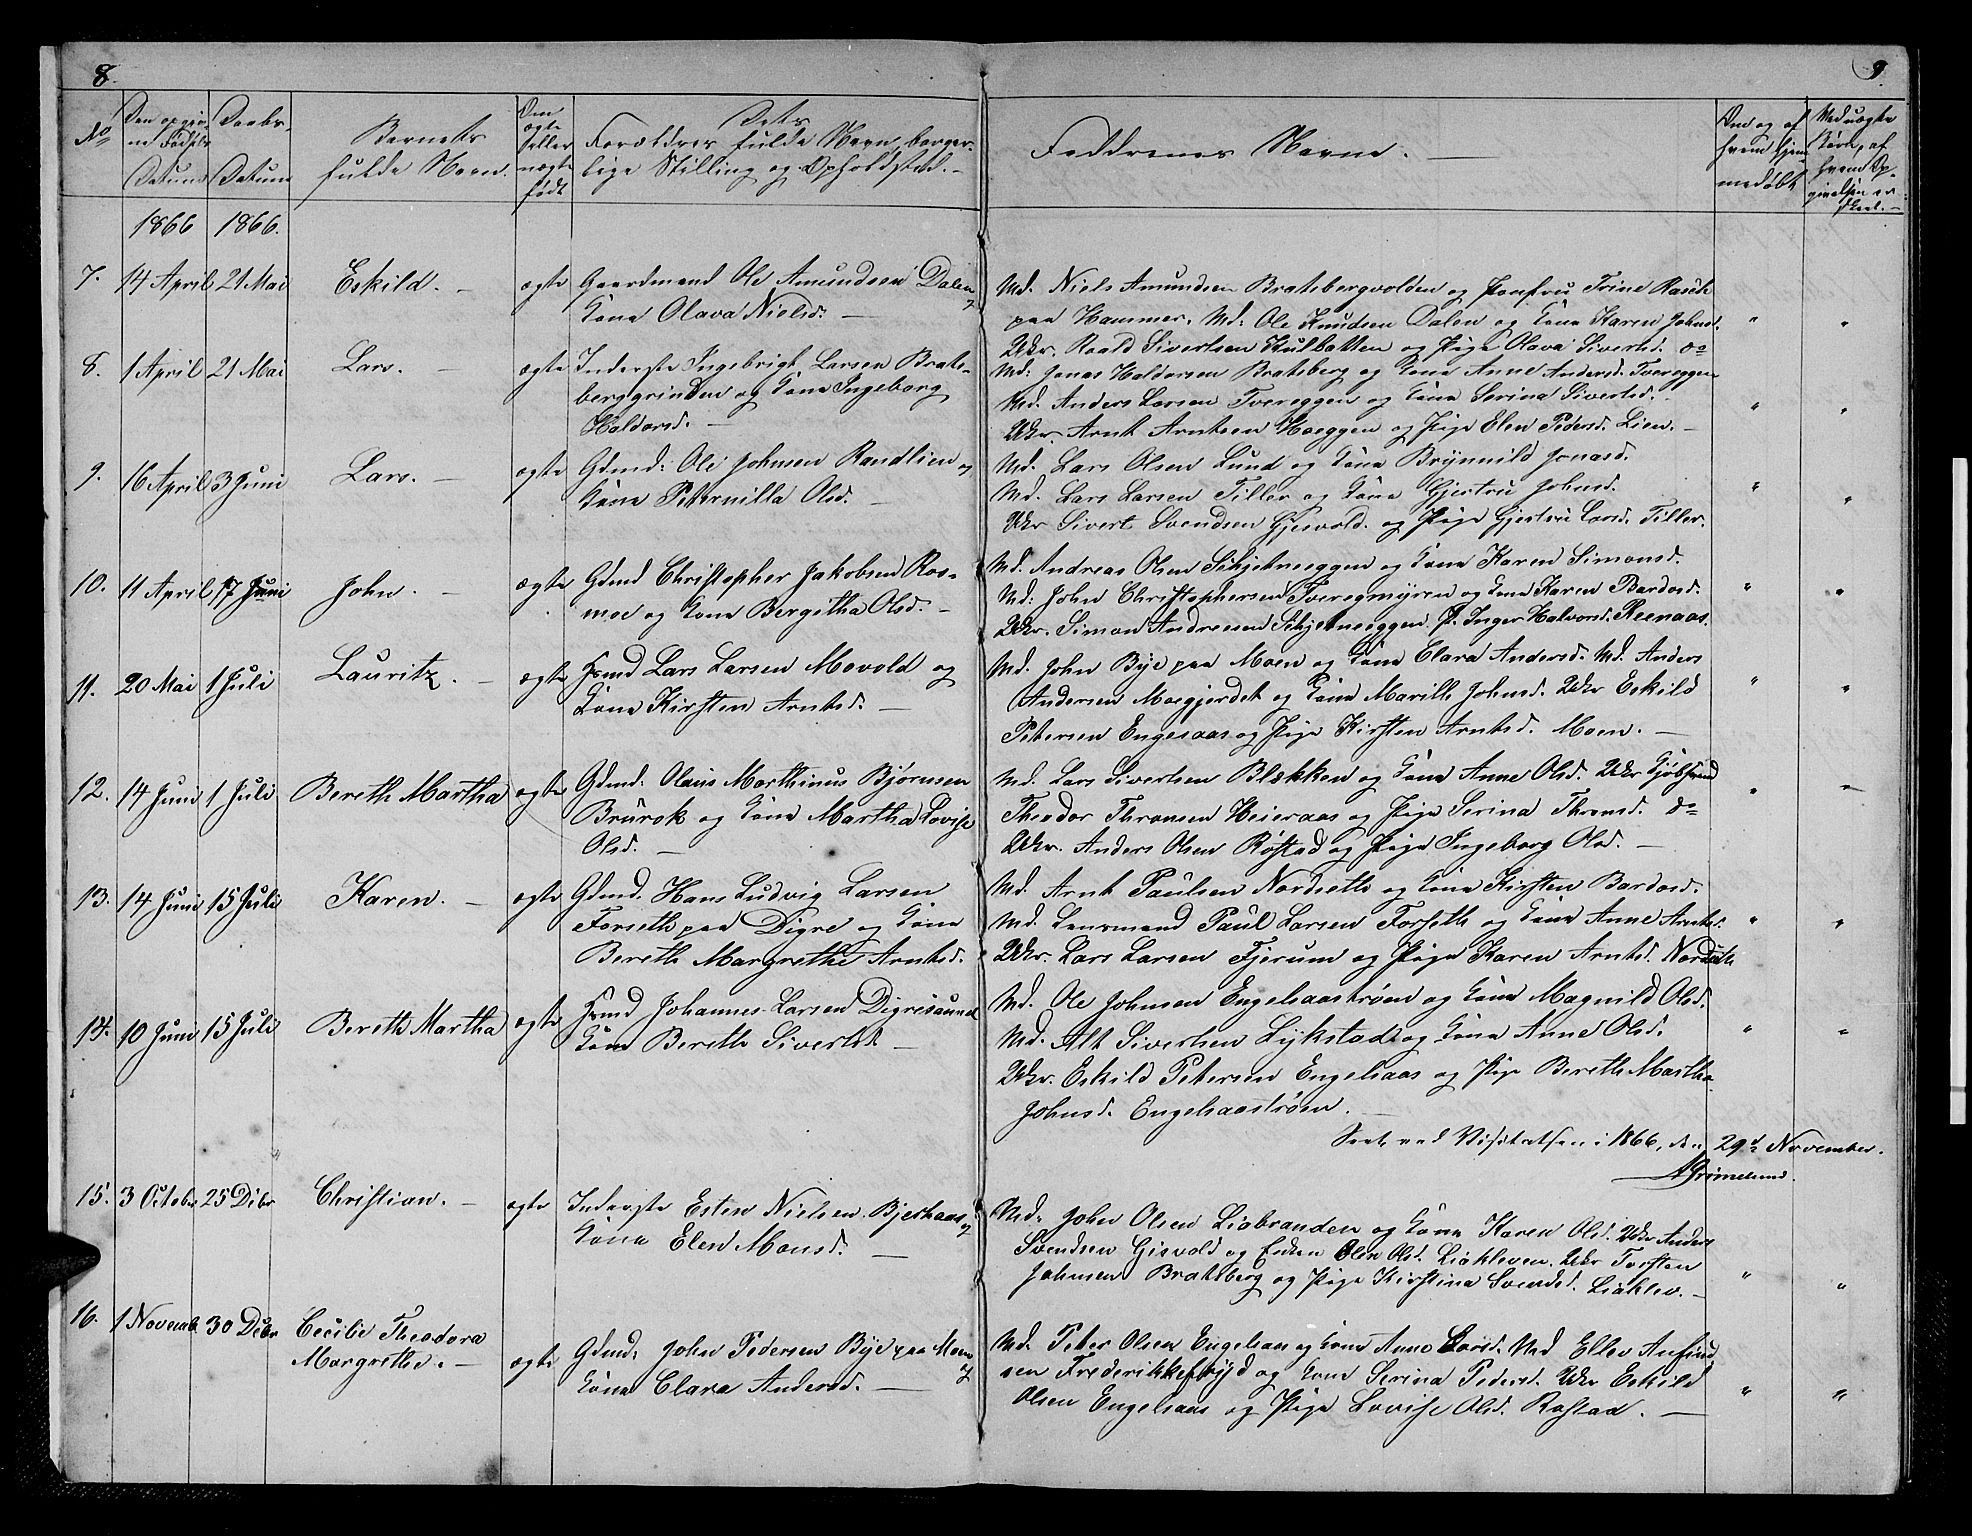 8.
9.
No
Den opgiv-
ne Fødsels
Datum
Daabs-
Datum
Barnets
fulde Navn.
Om
ægte
eller
uægte
født
Dets
Forældres fulde Navn, borger-
lige Stilling og Opholdssted. -
Faddrenes Navne. -
Om og af
hvem hjem-
medøbt
Ved uægte
Børn, af
hvem Op-
givelsen er
skeet. -
1866 1866.
7. 14 April 21 Mai Eskild. - ægte Gaardmand Ole Amundsen Dalen og
Kone Olava Nielsd. -
Md. Niels Amundsen Bratsbergvolden og Jomfru Trine Rasch
paa Hammer. Md: Ole Knudsen Dalen og Kone Karen Johnsd.
Ukr. Roald Sivertsen Kulbotten og Pige Olava Sivertsd. do
8. 1 April 21 Mai Lars. - ægte Inderste Ingebrigt Larsen Brats-
berggrinden og Kone Ingeborg
Haldorsd. -
Md: Jonas Haldorsen Bratsberg og Kone Anne Andersd. Tvereggen
Md. Anders Larsen Tvereggen og Kone Serina Sivertsd.
Ukr. Arnt Arntsen Hoeggen og Pige Elen Pedersd. Lien. -
9. 16 April 3 Juni Lars. - ægte Gdmd: Ole Johnsen Randlien og
Kone Peternilla Olsd. -
Md. Lars Olsen Lund og Kone Brynnild Jonasd.
Md. Lars Larsen Tiller og Kone Gjertru Johnsd.
Ukr Sivert Svendsen Gjesvold. og Pige Gjertru Larsd. Tiller.
10. 11 April 17 Juni John. - ægte Gdmd Christopher Jakobsen Ros-
moe og Kone Bergitha Olsd. -
Md. Andreas Olsen Schjetneeggen og Kone Karen Simonsd.
Md: John Christophersen Tveregmyren og Kone Karen Bardosd.
Ukr. Simon Andreesen Schjetneeggen P. Inger Halvorsd. Reenaas.
11. 20 Mai 1 Juli Lauritz. - ægte Hsmd Lars Larsen Movold og
Kone Kirsten Arntsd. -
Md. John Bye paa Moen og Kone Clara Andersd. Md. Anders
Andersen Moegjerdet og Kone Marith Johnsd. Ukr Eskild
Petersen Engesaas og Pige Kirsten Arntsd. Moen. -
12. 14 Juni 1 Juli Bereth Martha ægte Gdmd. Olaus Marthinus Bjørnsen
Brurok og Kone Martha Lovise
Olsd. -
Md. Lars Sivertsen Blækken og Kone Anne Olsd. Ukr Kjøbsvend
Theodor Thronsen Heieraas og Pige Serina Thronsd. do
Ukr. Anders Olsen Røstad og Pige Ingeborg Olsd. -
13. 14 Juni 15 Juli Karen. - ægte Gdmd. Hans Ludvig Larsen
Forseth paa Digre og Kone
Bereth Margrethe Arntsd.
Md. Arnt Paulsen Nordseth og Kone Kirsten Bardosd.
Md. Lensmand Paul Larsen Forseth og Kone Anne Arntsd.
Ukr. Lars Larsen Fjerum og Pige Karen Arntsd. Nordseth
14. 10 Juni 15 Juli Bereth Martha ægte Hsmd Johannes Larsen Digresaunet
Kone Bereth Sivertsd -
Md. Ole Johnsen Engelsaastrøen og Kone Magnild Olsd.
Md. Alt Sivertsen Lykstad og Kone Anne Olsd.
Ukr. Eskild Petersen Engelsaas og Pige Bereth Martha
Johnsd. Engelsaastrøen. -
Seet ved Visitatsen i 1866, den 29de November.
AGrimelund.
15. 3 October 25 Debr Christian. - ægte Inderste Esten Nielsen Bjerkaas og
Kone Elen Monsd. -
Md. John Olsen Liabranden og Kone Karen Olsd. Ukr Anders
Svendsen Gisvold og Enken Elen Olsd. Liakleven. Ukr Torsten
Johnsen Bratsberg og Pige Kirstina Svendsd. Liaklev. -
16. 1 Novemb. 30 Debr Cecilie Theodora
Margrethe. - ægte Gdmd: John Pedersen Bye paa Moen og
Kone Clara Andersd. -
Md. Peter Olsen Engelsaas og Kone Anne Larsd. Md Ellev Anfind-
sen Frederikkefryd og Kone Serina Pedersd. Ukr Eskild
Olsen Engelsaas og Pige Lovise Olsd. Rostad. -